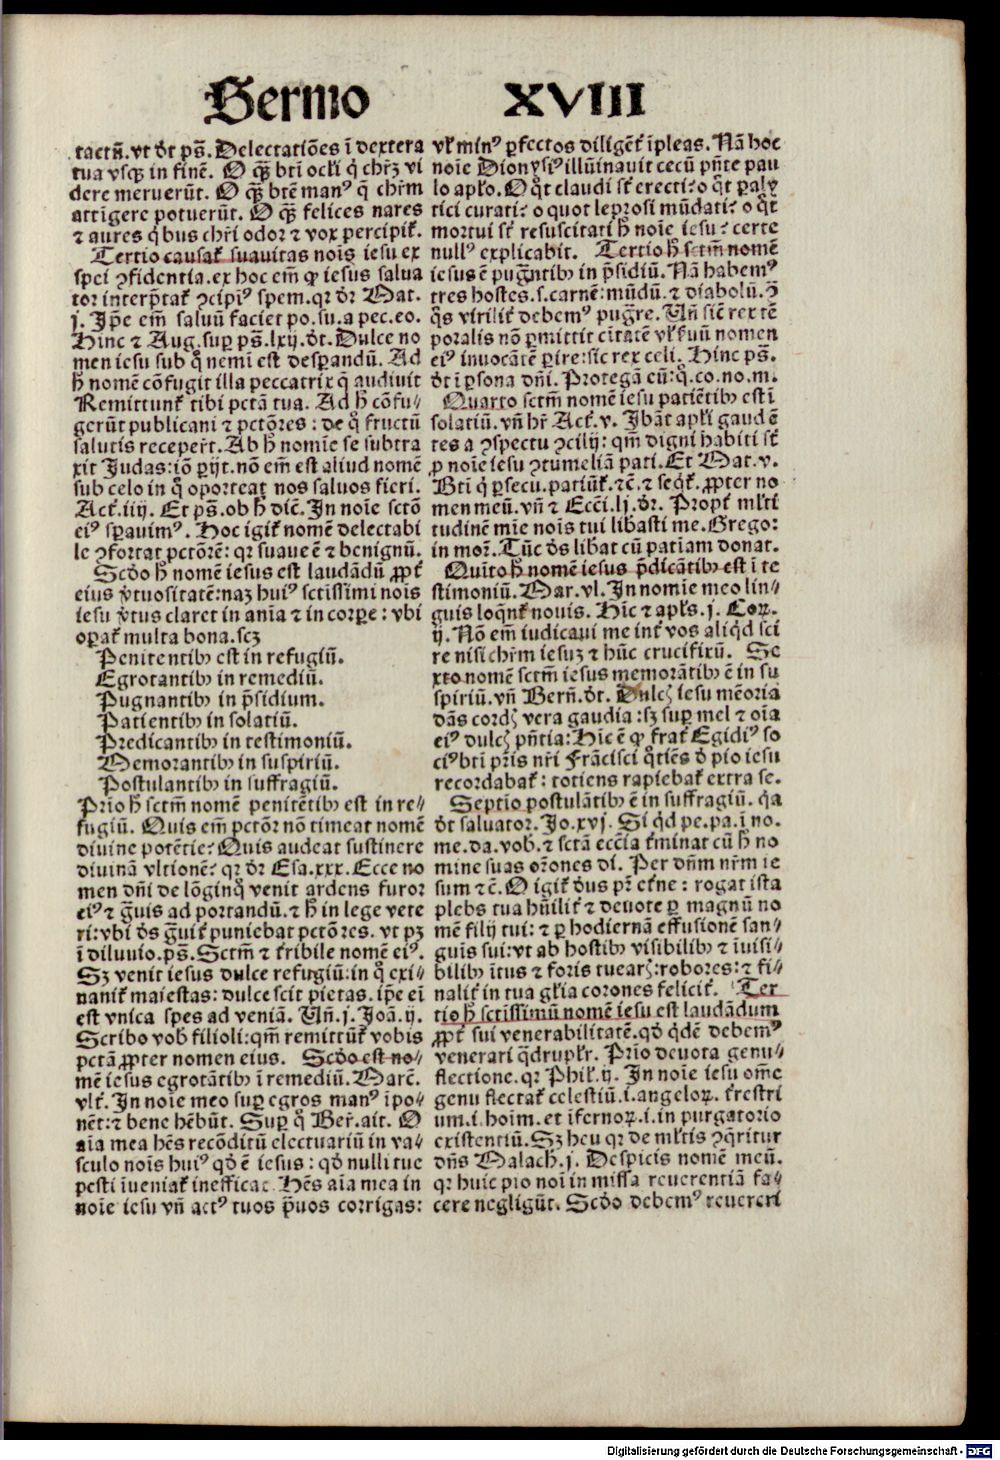 Sermo XVIII
tactū. vt dt ps̄. Delectatiões ī dextera
tua vsqꝫ in finē. O qꝫ bti ocłi q̇ chrꝫ vi
dere meruerūt. O qꝫ btē manꝰ q̄ chrm̄
attigere potuerūt. O qꝫ felices nares
⁊ aures q̇bus chri odor ⁊ vox percipit̄.
Tertio causat̄ suauitas nois iesu ex
spei ꝯfidentia. ex hoc em̄ ꝙ iesus salua
tor interp̄tat̄ ꝯcipiꝰ spem. qr dr Mat.
j. Ip̄e em̄ saluū faciet po. su. a pec. eo.
Hinc ⁊ Aug. sup ps̄. lxij. dt. Dulce no
men iesu sub q̊ nemi est desꝑandū. Ad
h̄ nomē cōfugit illa peccatrix q̄ audiuit
Remittunt̄ tibi pctā tua. Ad h̄ cōfu⸗
gerūt publicani ⁊ pctōres: de q̊ fructū
salutis receper̄t. Ab h̄ nomie se subtra
xit Judas: iō ꝑijt. nō em̄ est aliud nomē
sub celo in q̊ oporteat nos saluos fieri.
Act̄. iiij. Et ps̄. ob h̄ diē. In noie sctō
eiꝰ sꝑauimꝰ. Hoc igit̄ nomē delectabi
le ꝯfortat pctōrē: qr suaue ē ⁊ benignū.
Scdo h̄ nomē iesus est laudādū ꝓpt̄
eius v̓tuositatē: naꝫ huiꝰ sctissimi nois
iesu v̓tus claret in aīa ⁊ in corꝑe: vbi
oꝑat̄ multa bona. scꝫ
Penitentibꝫ est in refugiū.
Egrotantibꝫ in remediū.
Pugnantibꝫ in p̄sidium.
Patientibꝫ in solatiū.
Predicantibꝫ in testimoniū.
Memorantibꝫ in suspiriū.
Postulantibꝫ in suffragiū.
Prīo h̄ sctm̄ nomē penitētibꝫ est in re⸗
fugiū. Quis em̄ pctōr nō timeat nomē
diuine potētie? Quis audeat sustinere
diuinā vltionē? qr dr Esa. xxx. Ecce no
men dn̄i de lōginq̊ venit ardens furor
eiꝰ ⁊ g̊uis ad portandū. ⁊ h̄ in lege vete
ri: vbi ds̄ g̊uit̄ puniebat pctōres. vt pꝫ
ī diluuio. ps̄. Sctm̄ ⁊ t̄ribile nomē eiꝰ.
Sꝫ venit iesus dulce refugiū: in q̊ exi⸗
nanit̄ maiestas: dulcescit pietas. ip̄e ei̅
est vnica spes ad veniā. Vn̄. j. Joā. ij.
Scribo vob̄ filioli: qm̄ remittūt̄ vobis
pctā ꝓpter nomen eius. Scdo est no⸗
mē iesus egrotātibꝫ ī remediū. Marc̄.
vlt̄. In noie meo suꝑ egros manꝰ īpo⸗
nēt: ⁊ bene hēbūt. Suꝑ q̊ Ber̄. ait. O
aīa mea hēs recōditū electuariū in va⸗
sculo nois huiꝰ qd̄ ē iesus: qd̄ nulli tue
pesti īueniat̄ inefficac. Hēs aīa mea in
noie iesu vn̄ actꝰ tuos p̊uos corrigas:
vł minꝰ ꝑfectos diligēt̄ īpleas. Nā hoc
noie Dionysiꝰ illūinauit cecū pn̄te pau
lo apło. O q̊t claudi st̄ erecti? o q̊t ꝑaly
tici curati? o quot leprosi mūdati? o q̊t
mortui st̄ resuscitati h̄ noie iesu? certe
nullꝰ explicabit. Tertio h̄ sctm̄ nomē
iesus ē pug̊ntibꝫ in p̄sidiū. Nā habemꝰ
tres hostes. s. carnē: mūdū. ⁊ diabolū. ꝯ
q̊s virilit̄ debemꝰ pug̊re. Vn̄ sic̄ rex tē
poralis nō ꝑmittit ciuitatē vł suū nomen
eiꝰ inuocātē ꝑire: sic rex celi. Hinc ps̄.
dt ī ꝑsona dn̄i. Protegā eū: q̊. co. no. m.
Quarto sctm̄ nomē iesu patiētibꝫ est ī
solatiū. vn̄ hr̄ Act̄. v. Ibāt apłi gaudē
tes a ꝯspectu ꝯcilij: qm̄ digni habiti st̄
ꝓ noie iesu ꝯtumeliā pati. Et Mat. v.
Bti q̇ ꝑsecu. patiūt̄. ⁊c̄. ⁊ seqt̄. ꝓpter no
men meū. vn̄ ⁊ Ecc̄i. lj. dr. Propt̄ młti
tudinē mīe nois tui libasti me. Grego:
in mor̄. Tūc ds̄ libat cū patiam donat.
Quīto h̄ nomē iesus p̄dicātibꝫ est ī te
stimoniū. Mar. vl. In nomie meo lin⸗
guis loqnt̄ nouis. Hīc ⁊ apłs. j. Corꝝ.
ij. Nō em̄ iudicaui me int̄ vos aliqd̄ sci
re nisi chrm̄ iesuꝫ ⁊ hūc crucifixū. Se
xto nomē sctm̄ iesus memorātibꝫ ē in su
spiriū. vn̄ Bern̄. dt. Dulcꝭ iesu mēoria
dās cordꝭ vera gaudia: sꝫ suꝑ mel ⁊ oīa
eiꝰ dulcꝭ pn̄tia: Hic ē ꝙ frat̄ Egidiꝰ so
ciꝰ bti pr̄is nr̄i Frācisci q̊tiēs d̓ pio iesu
recordabat̄: totiens rapiebat̄ extra se.
Septīo postulātibꝫ ē in suffragiū. q̄a
dt saluator. Jo. xvj. Si qd̄ pe. pa. ī no.
me. da. vob̄. ⁊ sctā ecc̄ia t̄minat cū h̄ no
mine suas or̄ones di. Per dn̄m nr̄m ie
sum ⁊c̄. O igit̄ dn̄s pr̄ et̄ne: rogat ista
plebs tua hūilit̄ ⁊ deuote ꝑ magnū no
mē filij tui: ⁊ ꝑ hodiernā effusionē san⸗
guis sui: vt ab hostibꝫ visibilibꝫ ⁊ īuisi⸗
bilibꝫ ītus ⁊ foris tuearꝭ: robores: ⁊ fi⸗
nalit̄ in tua głia corones felicit̄. Ter
tio h̄ sctissimū nomē iesu est laudādum
ꝓpt̄ sui venerabilitatē. qd̄ q̇dē debemꝰ
venerari q̊druplr̄. Prīo deuota genu⸗
flectione. qr Phił. ij. In noie iesu om̄e
genu flectat̄ celestiū. i. angeloꝝ. t̄restri
um. i. hoīm. et ifernoꝝ. i. in purgatorio
existentiū. Sꝫ heu qr de młtis ꝯq̇ritur
dn̄s Malach̄. j. Despicis nomē meū.
qr huic pio noi in missa reuerentiā fa⸗
cere negligūt. Scdo debemꝰ reuereri
Digitalisierung gefördert durch die Deutsche Forschungsgemeinschaft - DFG